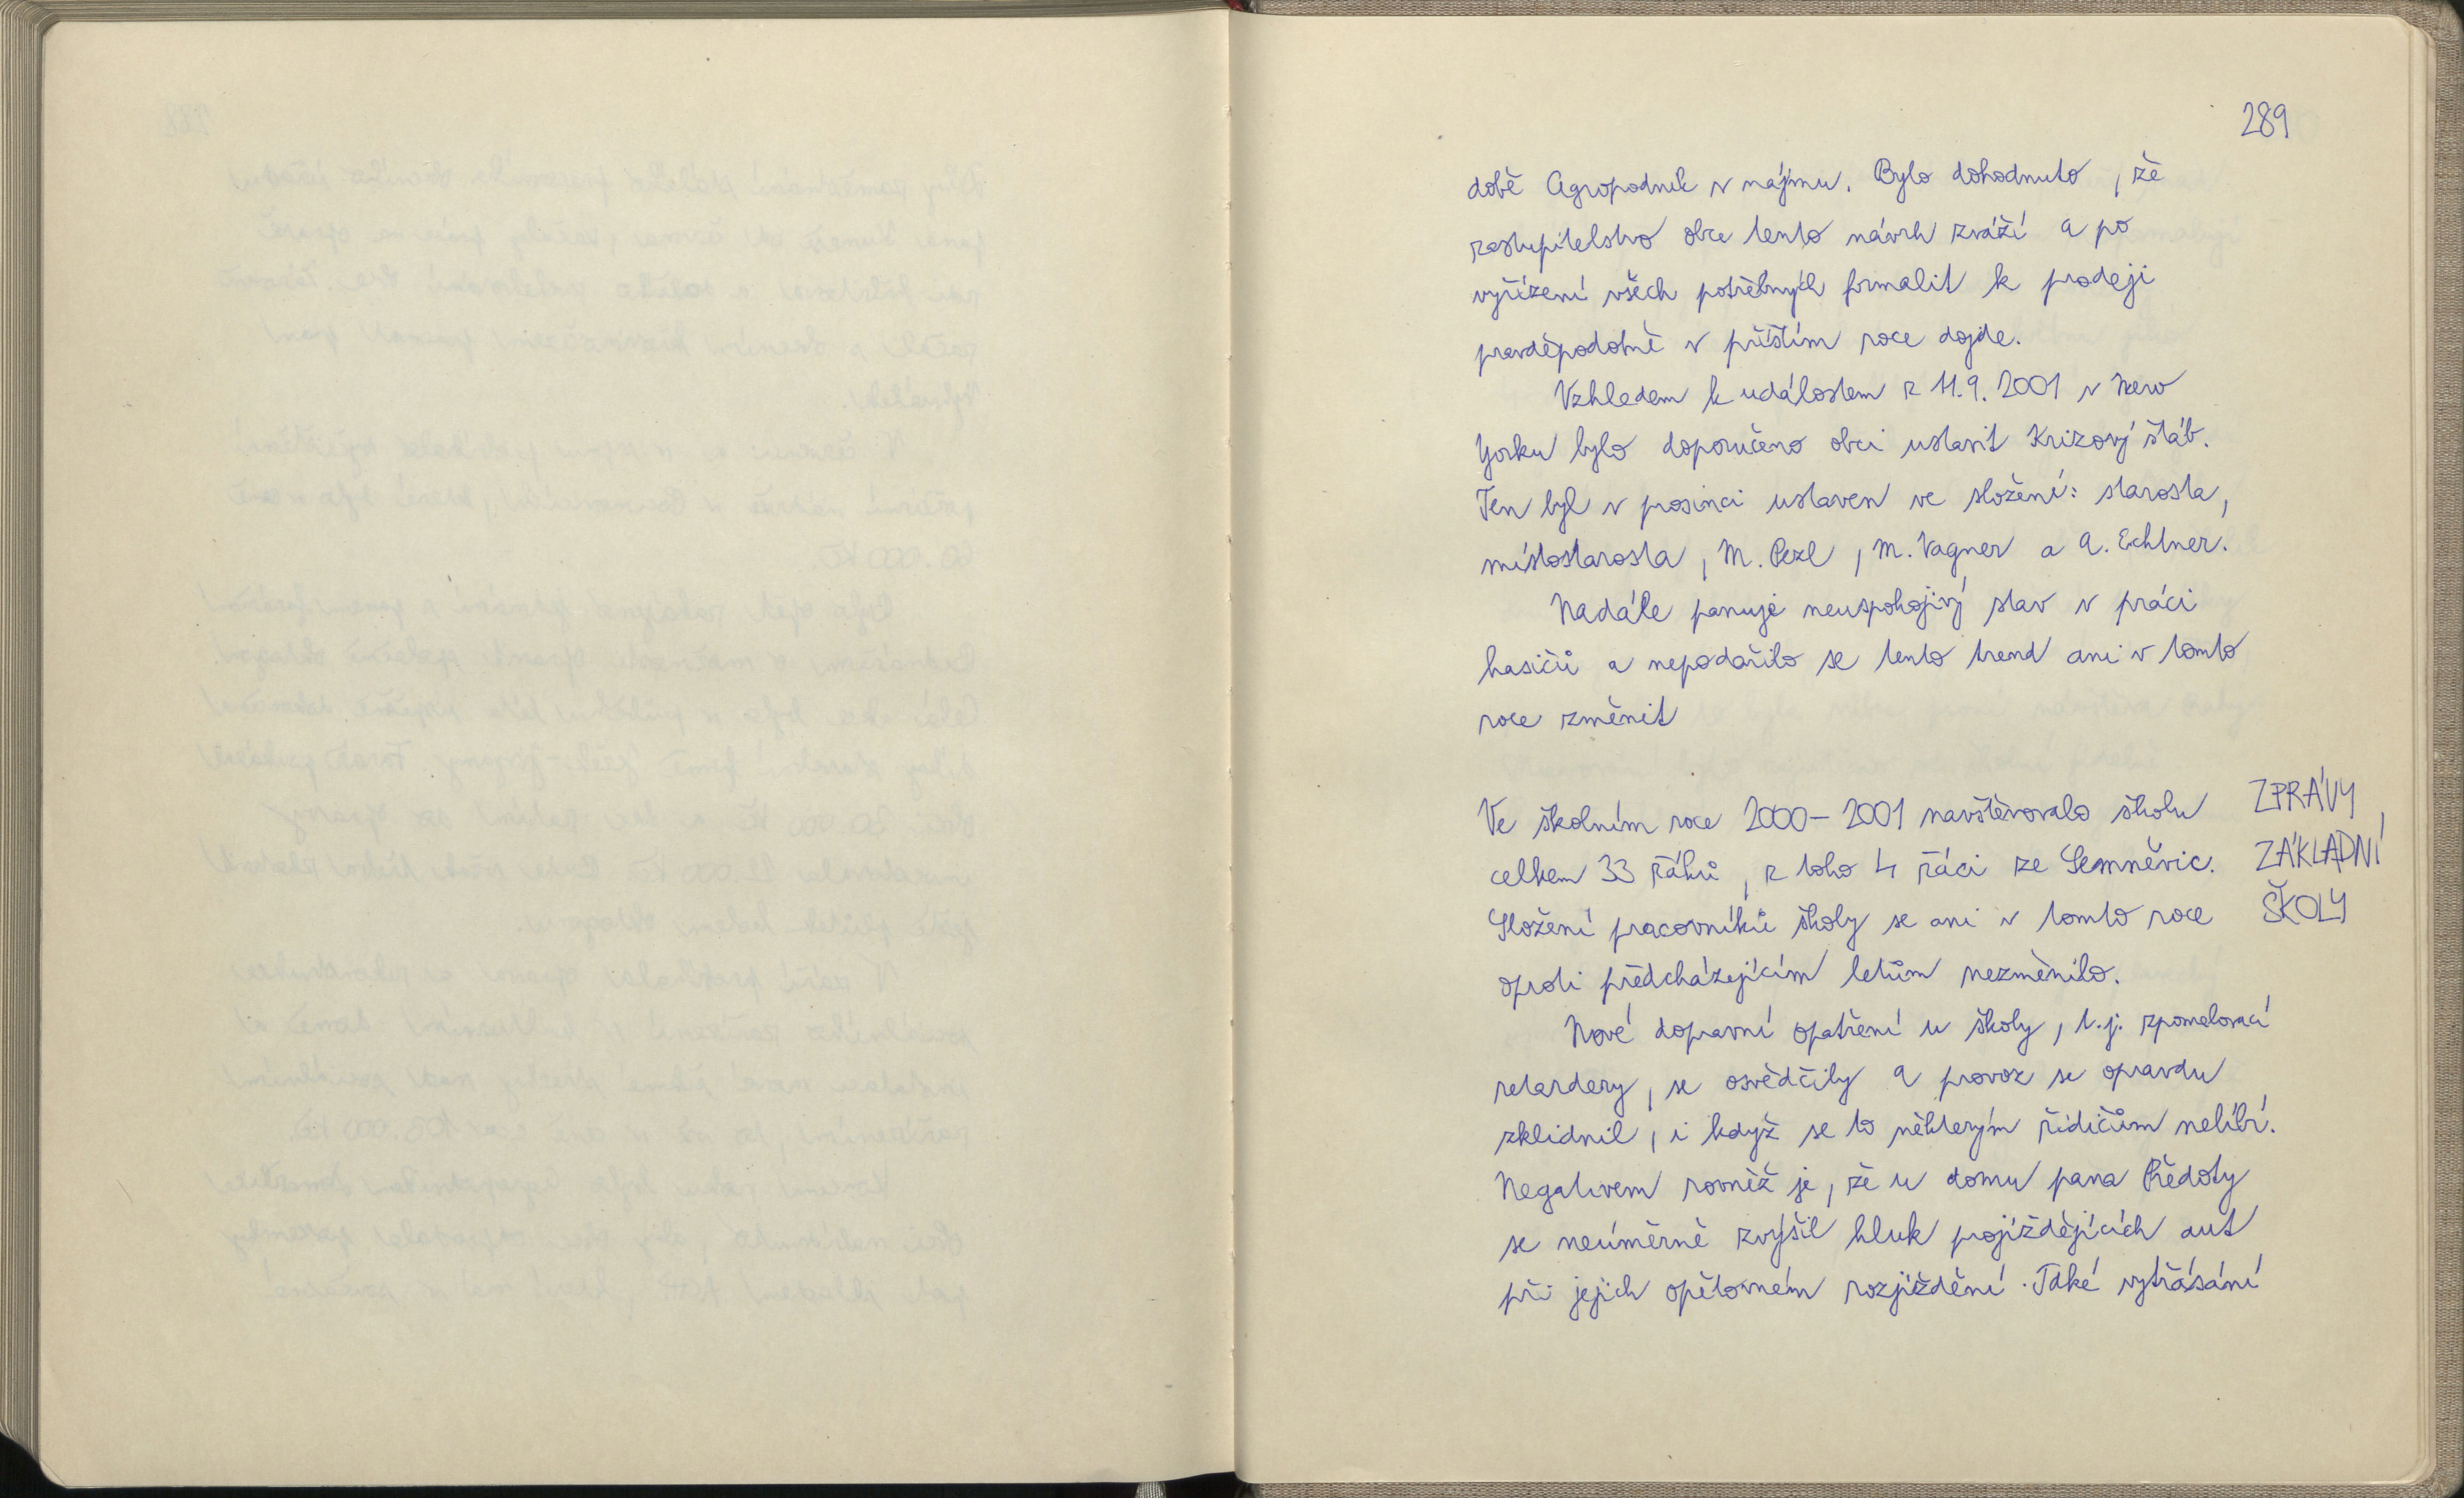 289
době Agropodnik v nájmu. Bylo dohodnuto, že
zastupitelstvo obce tento návrh zváží a po
vyřízení všech potřebných formalit k prodeji
pravděpodobně v příštím roce dojde.
Vzhledem k událostem z 11.9.2001 v New
Yorku bylo doporučeno obci ustavit Krizový štáb.
Ten byl v prosinci ustaven ve složení: starosta,
místostarosta, M. Pezl, M. Vagner a A. Echtner.
Nadále panuje neuspokojivý stav v práci
hasičů a nepodařilo se tento trend ani v tomto
roce změnit
Ve školním roce 2000-2001 navštěvovalo školu
celkem 33 žáků, z toho 4 žáci ze Semněvic.
Složení pracovníků školy se ani v tomto roce
oproti předcházejícím letům nezměnilo.
ZPRÁVY
ZÁKLADNÍ
ŠKOLY
Nové dopravní opatření u školy, t.j. zpomalovací
retardery, se osvědčily a provoz se opravdu
zklidnil, i když se to některým řidičům nelíbí.
Negativem rovněž je, že u domu pana Předoty
se neúměrně zvýšil hluk projíždějících aut
při jejich opětovném rozjíždění. Také vytřásání